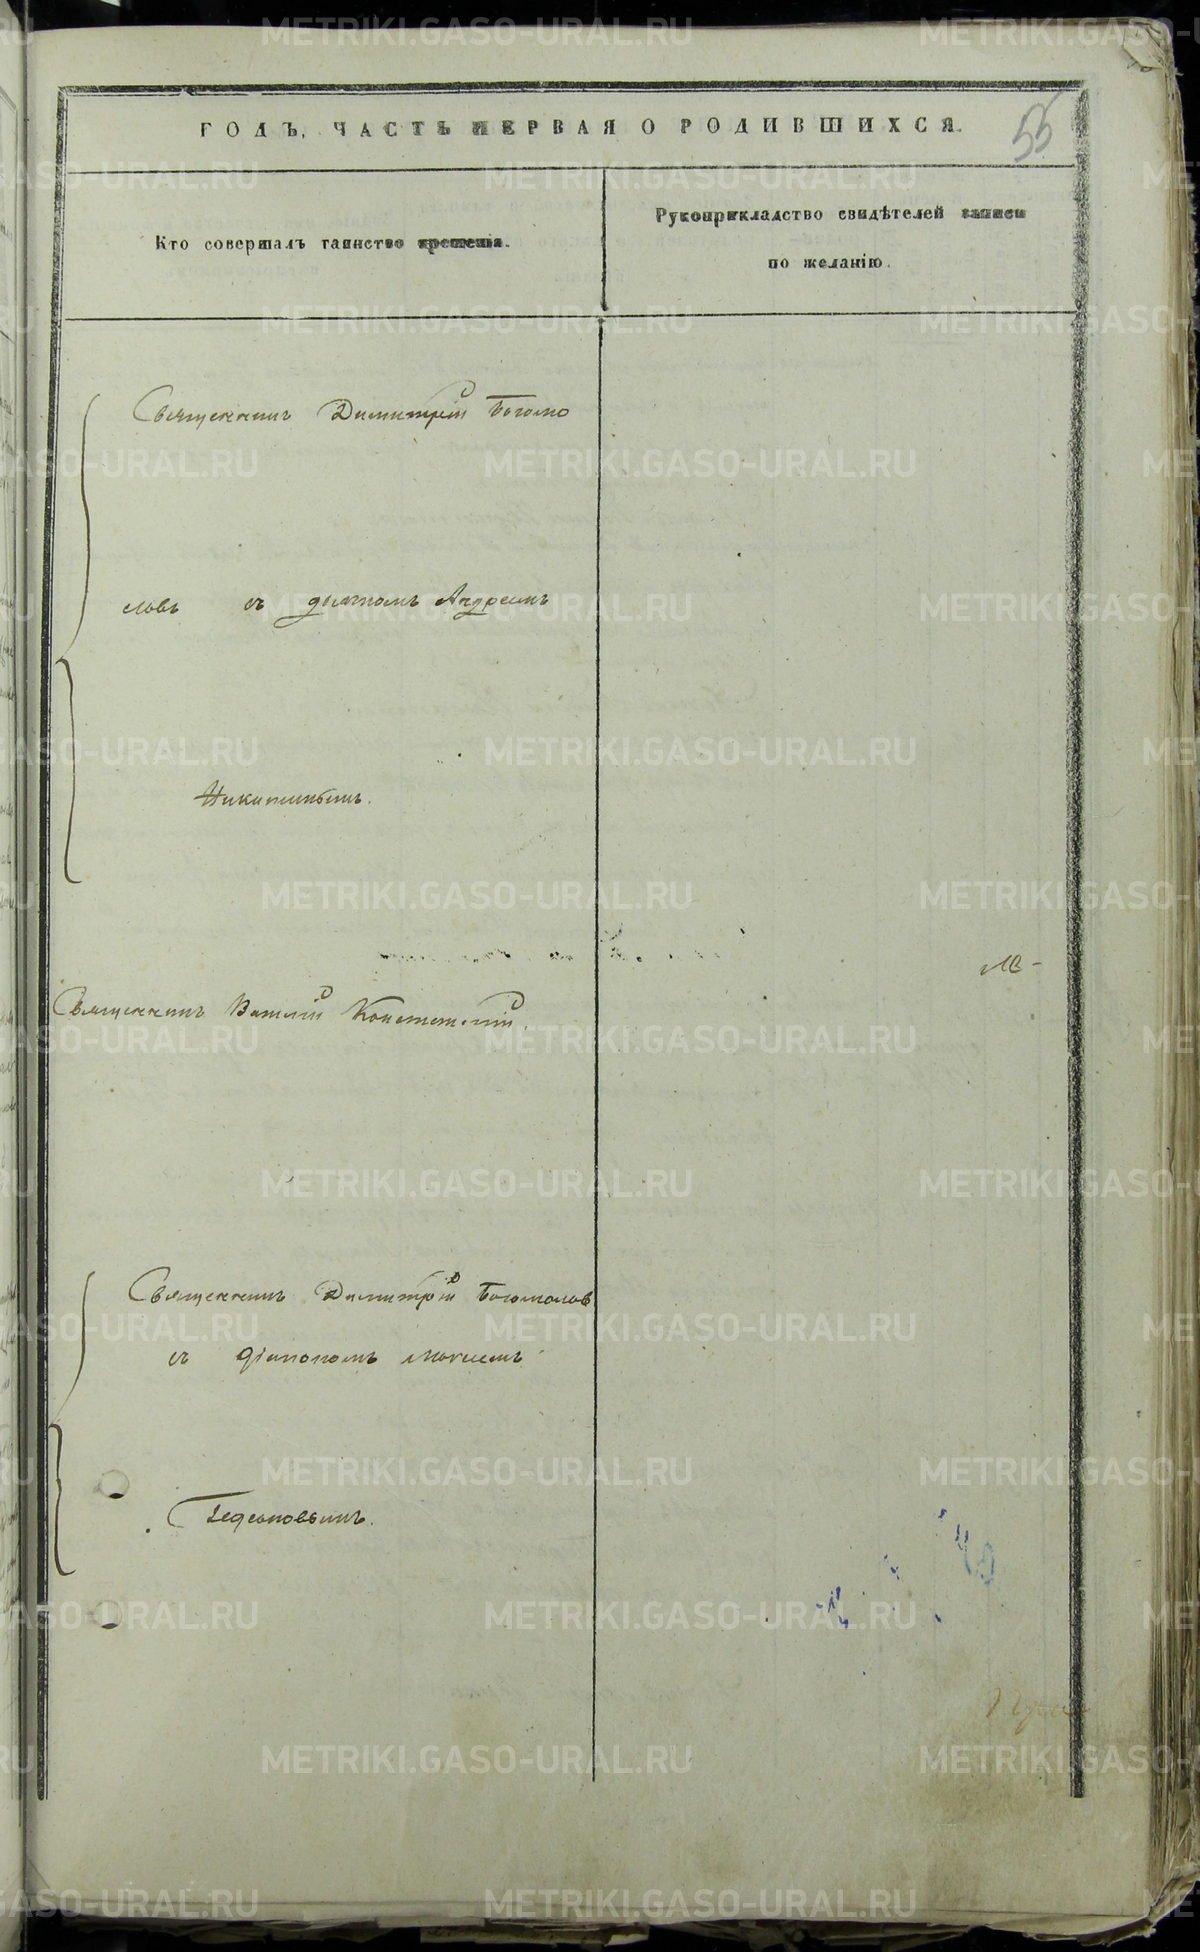 ГОДЪ, ЧАСТЬ ПЕРВАЯ О РОДИВШИХСЯ.
55
Кто совершалъ таинство крещенія.
Рукоприкладство свидѣтелей записи
по желанію.
Священникъ Димитрій Богомо
ловъ съ дьячкомъ Андреемъ
Никитинымъ.
Священникъ Василій
Священникъ Димитрій Богомоловъ
съ діакономъ
Гедеоновымъ.
METRIKI.GASO-URAL.RU